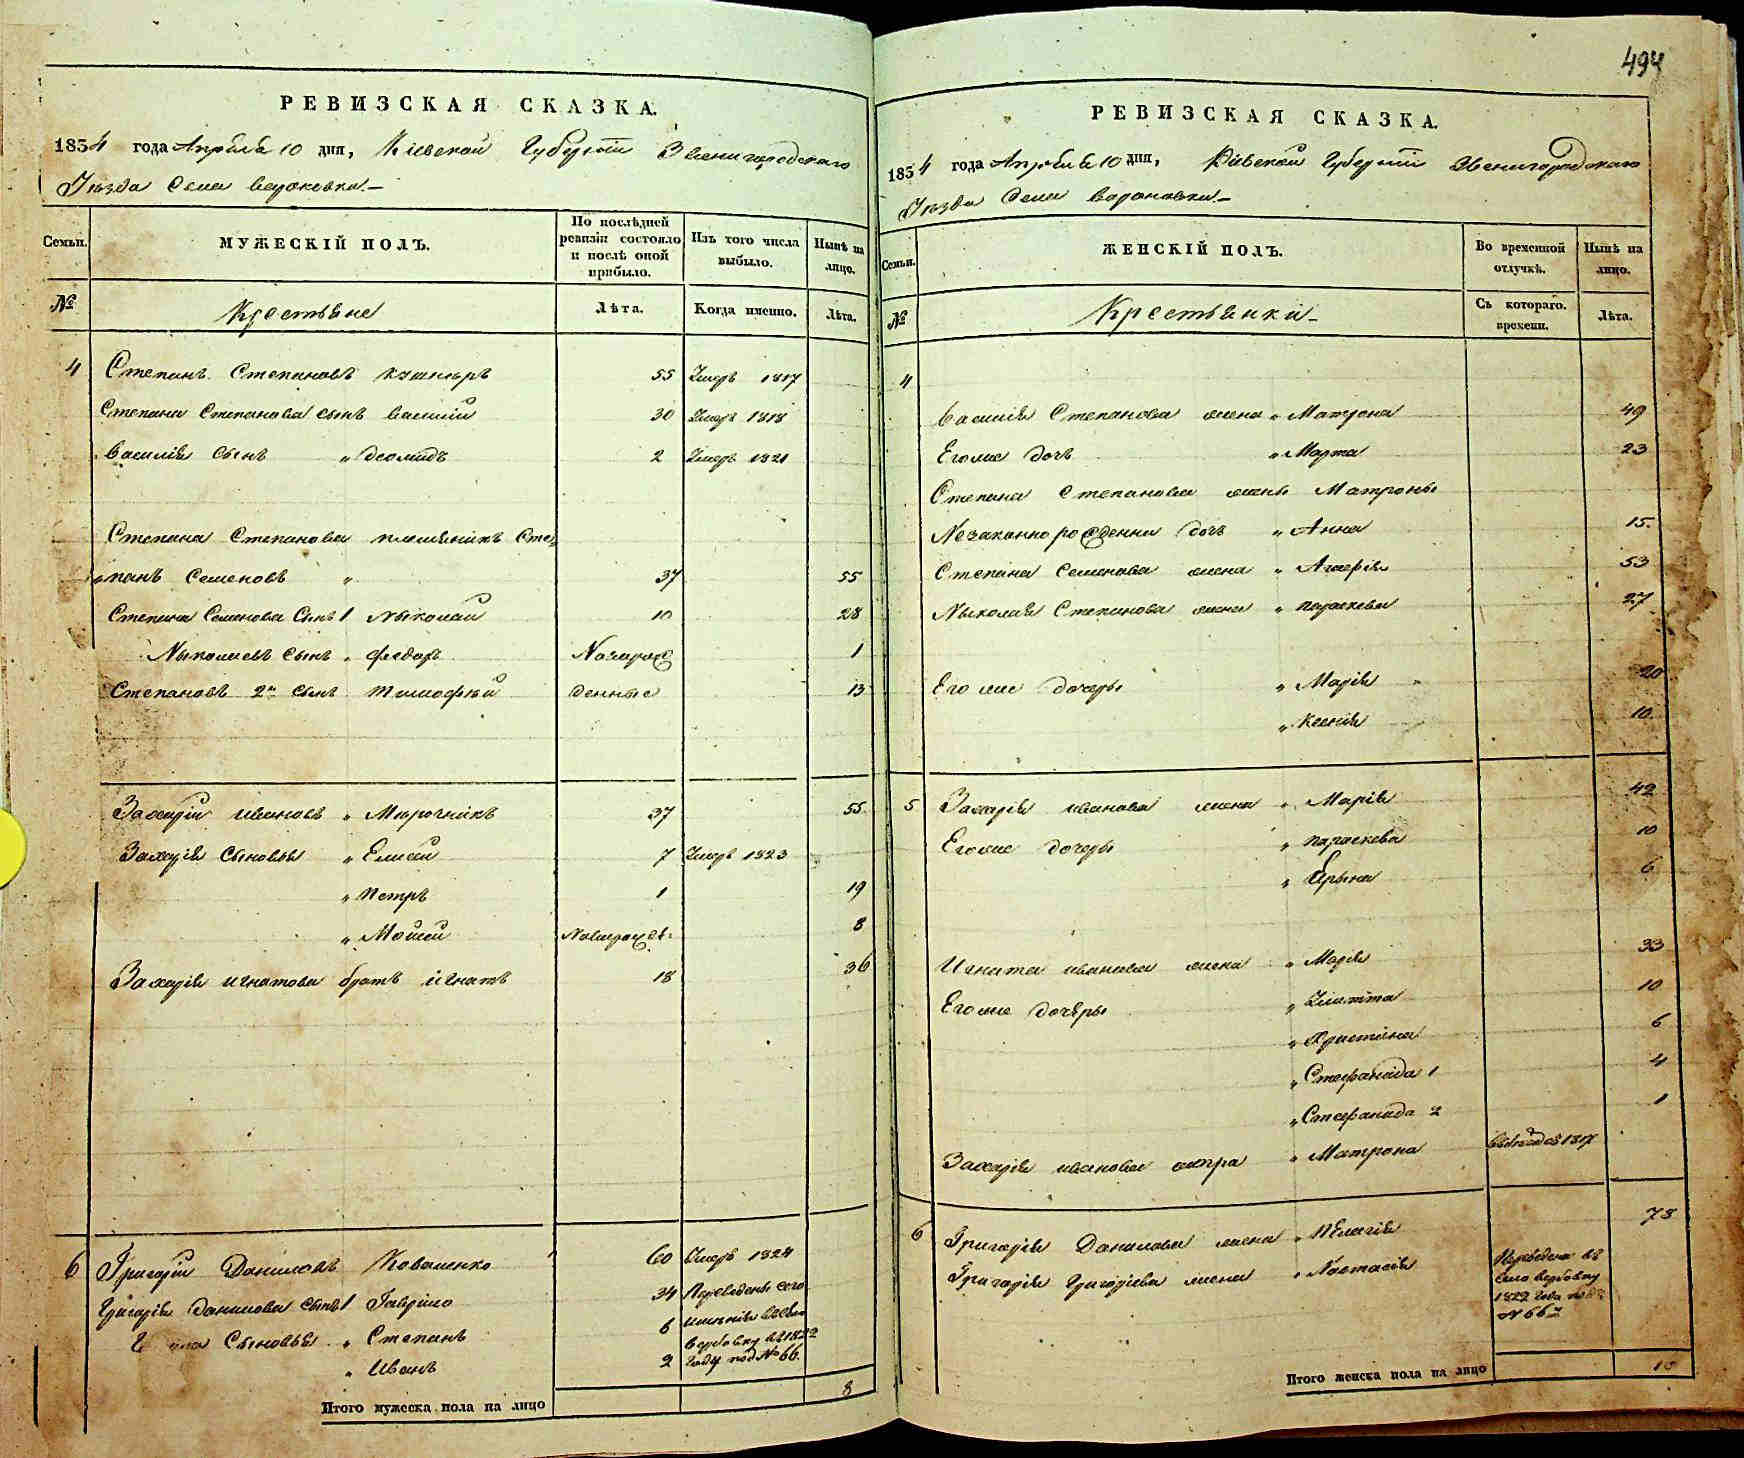 494
РЕВИЗСКАЯ СКАЗКА.
1834 года Апреля 10 дня, Кіевской Губерніи Звенигородскаго
Уезда Села
Семьи. МУЖЕСКІЙ ПОЛЪ. По послѣдней ревизіи состояло и послѣ оной прибыло. Изъ того числа выбыло. Нынѣ на лицо.
№ Крестьяне Лѣта. Когда именно. Лѣта.
4 Степанъ Степановъ Кушниръ 55 Умеръ 1817
Степана Степанова сынъ Василий 30 Умеръ 1818
Василія сынъ „ Деомидъ 2 Умеръ 1821
Степана Степанова племянникъ Сте=
„панъ Семеновъ „ 37 55
Степана Семенова Сынъ 1 Николай 10 28
Николаевъ сынъ „ Федоръ Новорож 1
Степановъ 2й сынъ Тимофей денные 13
Захарій Ивановъ „ Мирочникъ 37 55
Захарія Сыновья „ Елисей 7 Умеръ 1823
„ Петръ 1 19
„ Мойсей 8
Захарія Игнатова братъ Игнатъ 18 36
6 Григорій Даниловъ Коваленко 60 Умеръ 1824
Григорія Данилова сынъ 1 Гаврило 34 Переведены сего
Его Сыновья „ Степанъ 6 имения в село
Вербовку в 1822
„ Иванъ 2 году под № 66.
Итого мужеска пола на лицо 8
РЕВИЗСКАЯ СКАЗКА.
1834 года Апреля 10 дня, Кіевской Губерніи Звенигородскаго
Уезда Села
Семьи. ЖЕНСКІЙ ПОЛЪ. Во временной отлучкѣ. Нынѣ на лицо.
№ Крестьянки Съ котораго. времени. Лѣта.
4
Василія Степанова жена „ Матрона 49
Его же дочь „ Марта 23
Степана Степанова жены Матроны
Незаконно рожденна дочь „ Анна 15
Степана Семенова жена „ Агафія 53
Николая Степанова жена „ Параскева 27
Его же дочеры „ Марія 20
„ Ксенія 10
5 Захарія Иванова жена „ Марія 42
Его же дочеры „ Параскева 10
„ Ирына 6
Игната Иванова жена „ Марія 33
Его же дочеры „ 10
„ Христіна 6
„ Стефанида 1 4
„ Стефанида 2 1
Захарія Иванова сестра „ Матрона 1817
6 Григорія Данилова жена „ Пелагія 78
Григорія Григоріева жена „ Настасія Переведена въ
село Вербовку
1822 года под
№ 66м
Итого женска пола на лицо 15